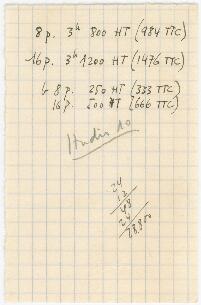 8 p. 3h 800 HT (984 TTC)
16 p. 3h 1200 HT (1476 TTC)
8 p. 250 HT (333 TTC)
16 p. 500 HT (666 TTC)
Studio 10
24
12
48
24
28,800